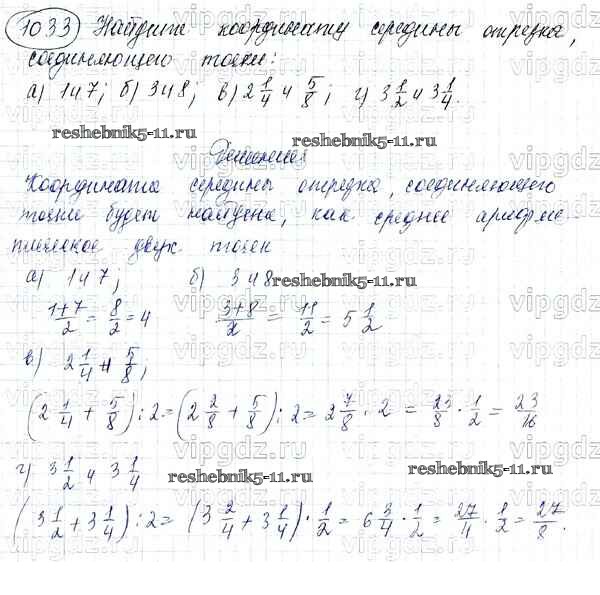 1033 Найдите координату середины отрезка,
соединяющего точки:
а) 1 и 7; б) 3 и 8; в) 2 1/4 и 5/8; г) 3 1/2 и 3 1/4.
reshebnik5-11.ru reshebnik5-11.ru
Решение:
Координата середины отрезка, соединяющего
точки будет найдена, как среднее арифме-
тическое двух точек
а) 1 и 7; б) 3 и 8 reshebnik5-11.ru
1+7/2 = 8/2 = 4 3+8/2 = 11/2 = 5 1/2
в) 2 1/4 и 5/8;
(2 1/4 + 5/8) : 2 = (2 2/8 + 5/8) : 2 = 2 7/8 : 2 = 23/8 · 1/2 = 23/16
г) 3 1/2 и 3 1/4 reshebnik5-11.ru reshebnik5-11.ru
(3 1/2 + 3 1/4) : 2 = (3 2/4 + 3 1/4) · 1/2 = 6 3/4 · 1/2 = 27/4 · 1/2 = 27/8.
vipgdz.ru